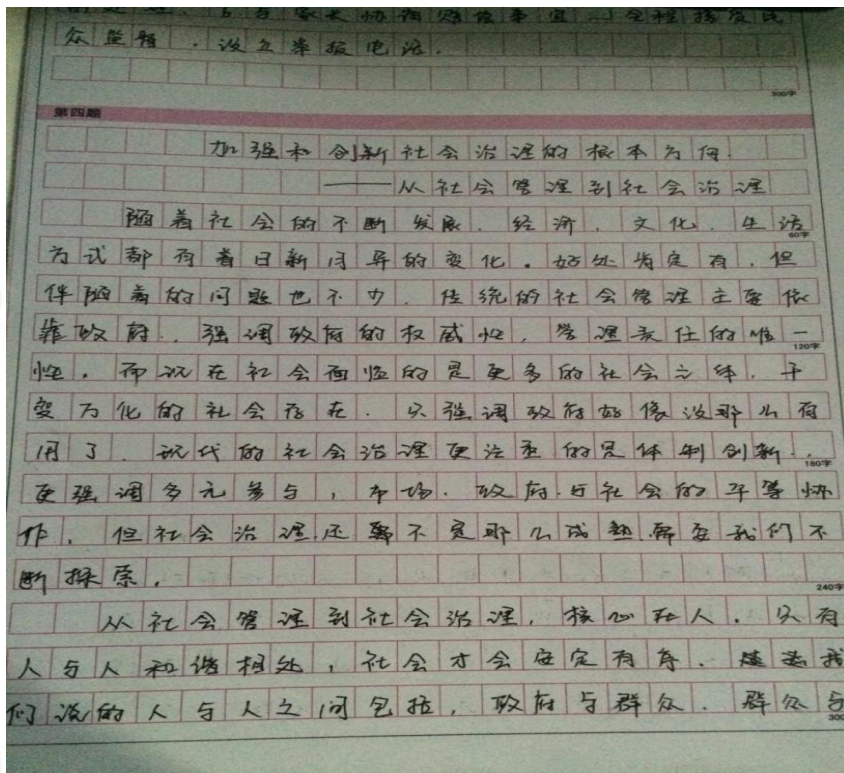 与家长协调赔偿事宜 全程接受民
众监督.设立举报电话.
300字
第四题
加强和创新社会治理的根本为何.
——从社会管理到社会治理
随着社会的不断发展.经济.文化.生活
60字
方式都有着日新月异的变化.好处肯定有.但
伴随着的问题也不少.传统的社会管理主要依
靠政府.强调政府的权威性,管理责任的唯一
120字
性.而现在社会面临的是更多的社会主体.千
变万化的社会存在.只强调政府好像没那么有
用了.现代的社会治理更注重的是体制创新.
180字
更强调多元参与,市场.政府与社会的平等协
作.但社会治理还不是那么成熟需要我们不
断探索.
240字
从社会管理到社会治理,核心在人.只有
人与人和谐相处,社会才会安定有序.我
们说的人与人之间包括,政府与群众.群众与
300